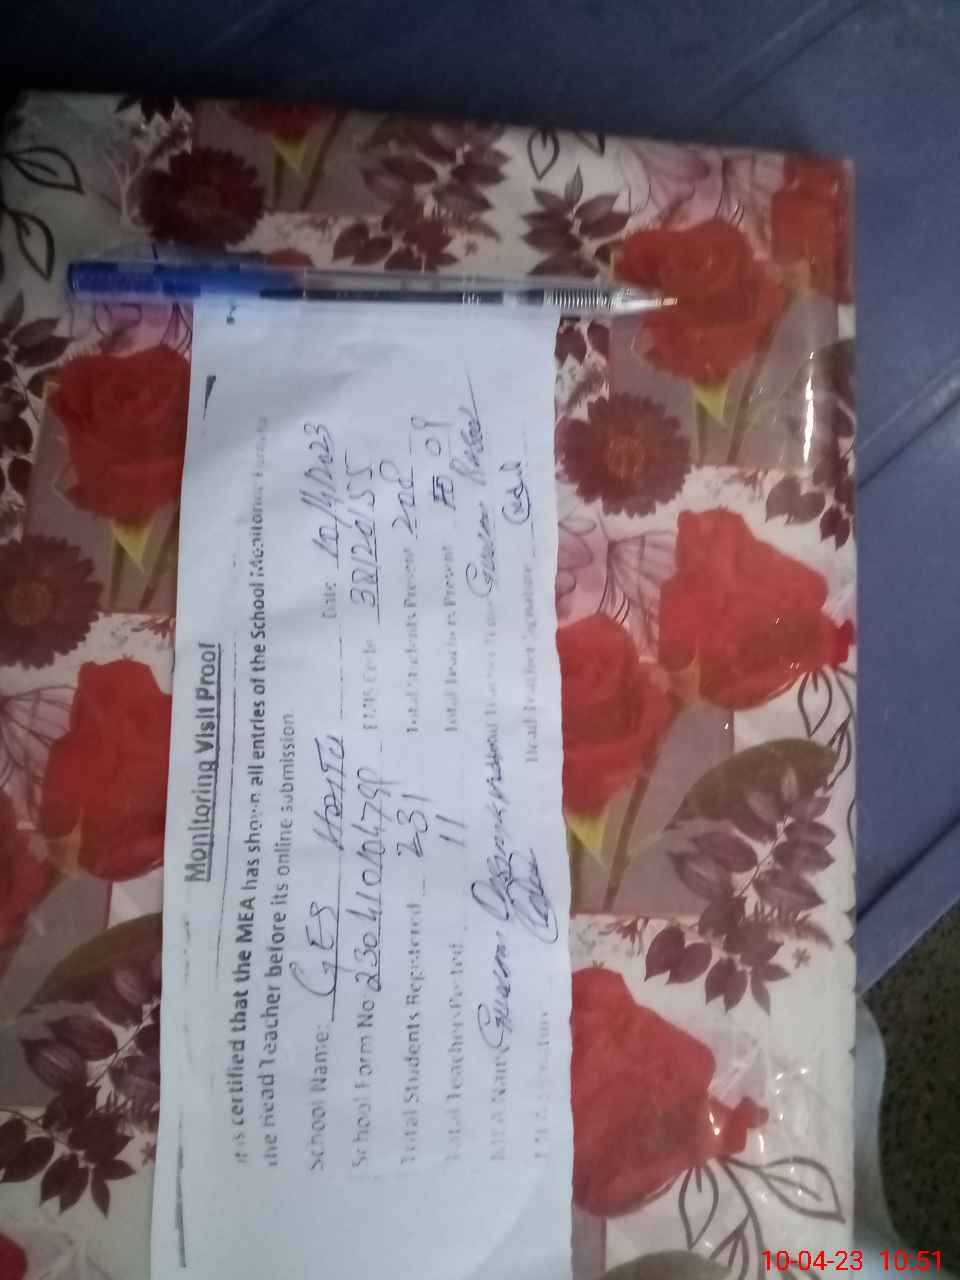 Monitoring Visit Proof
It is certified that the MEA has shown all entries of the School Monitoring Form to
the Head Teacher before its online submission.
School Name: GES Date 10/4/2023
School Form No: EMIS Code 38120155
Total Students Registered 231 Total Students Present 208
Total Teachers Posted 11 Total Teachers Present 09
MEA Name Ghulam Head Teacher Name Ghulam Rasool
MEA Signature Head Teacher Signature
10-04-23 10:51